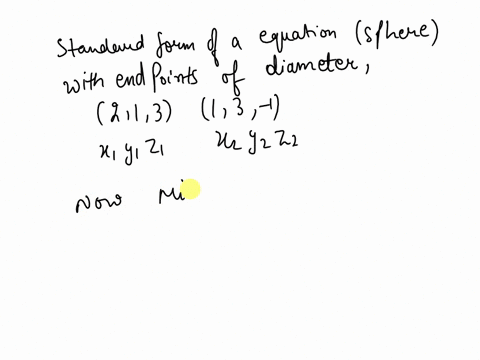 Standard form of a equation (Sphere)
with endpoints of diameter,
(2,1,3) (1,3,-1)
x₁ y₁ z₁ x₂ y₂ z₂
Now Mi